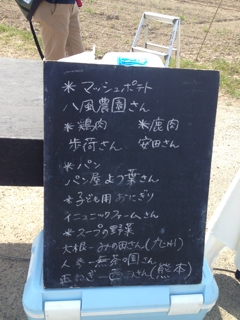 ＊マッシュポテト
八風農園さん
＊鶏肉　＊鹿肉
歩荷さん　安田さん
＊パン
パン屋よつ葉さん
＊子ども用おにぎり
イニュニックファームさん
＊スープの野菜
大根ーみの田さん
人参ー無茶園さん
玉ねぎー さん(熊本)